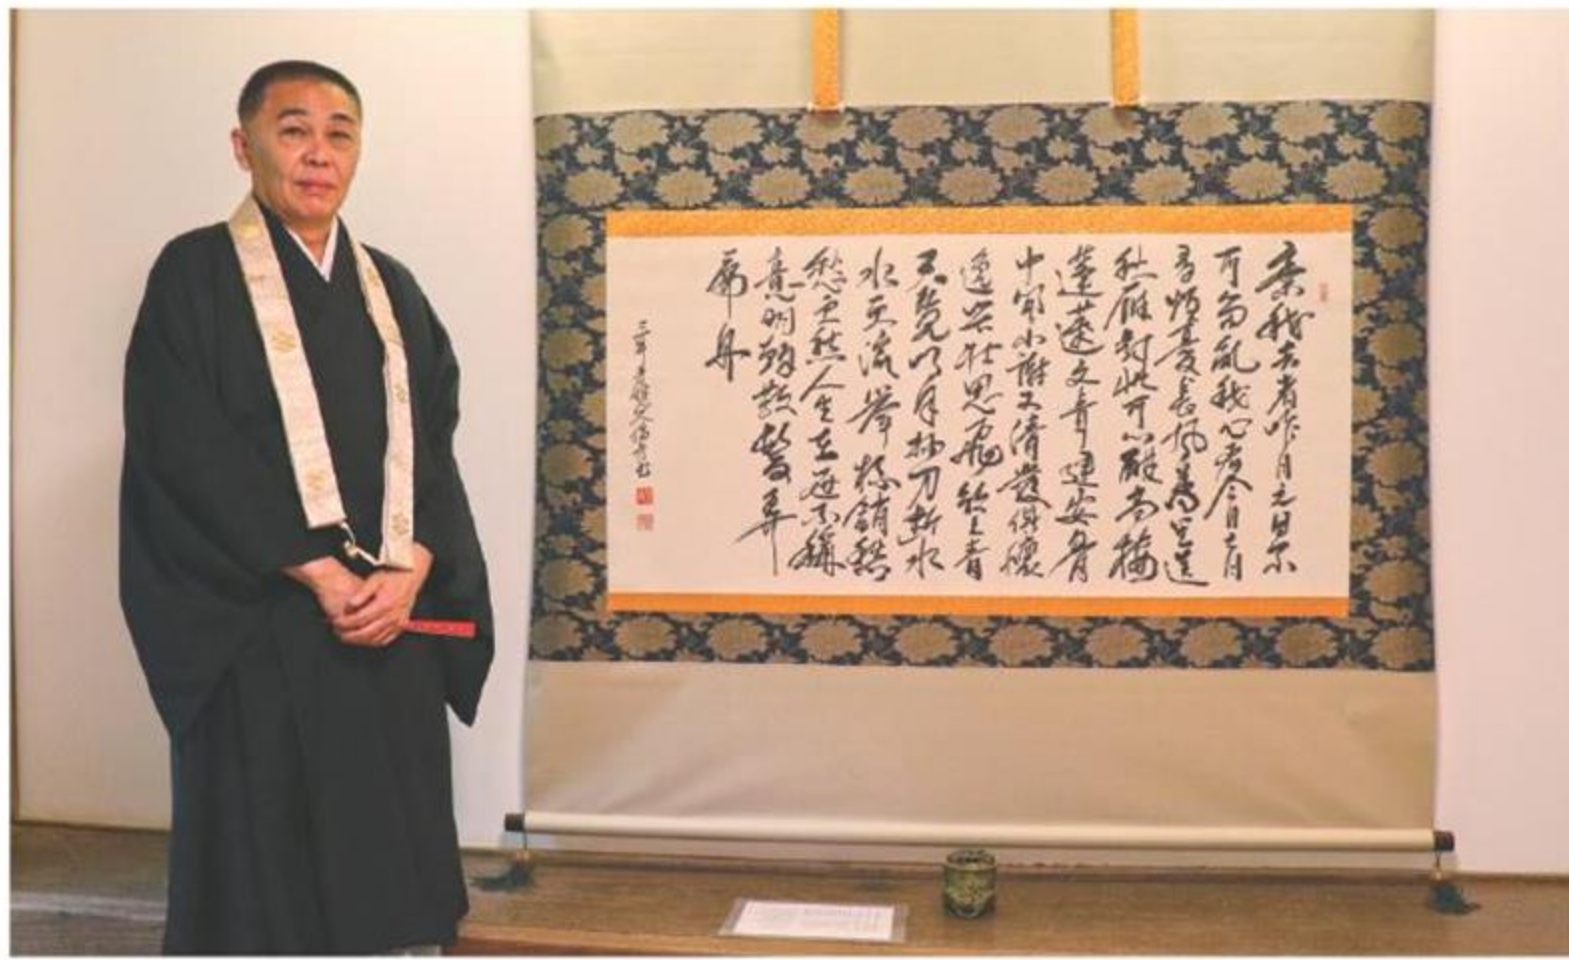 棄我去者昨日之日不
可留亂我心者今日之日
多煩憂長風萬里送
秋雁對此可以酣高樓
蓬萊文章建安骨
中間小謝又清發俱懷
逸興壯思飛欲上青
天覽明月抽刀斷水
水更流舉杯銷愁
愁更愁人生在世不稱
意明朝散髮弄
扁舟